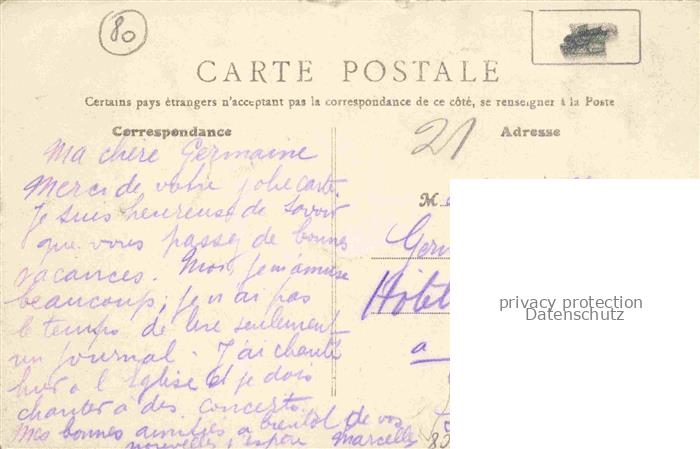 80
CARTE POSTALE
Certains pays étrangers n'acceptant pas la correspondance de ce côté, se renseigner à la Poste
Correspondance
Ma chère Germaine
Merci de votre jolie carte.
Je suis heureuse de savoir
que vous passez de bonnes
vacances. Moi, je m'amuse
beaucoup, je n'ai pas
le temps de lire seulement
un journal. J'ai chanté
hier à l'Eglise et je dois
chanter à des concerts.
Mes bonnes amitiés à bientôt de vos
nouvelles j'espère Marcelle
21
Adresse
M
Ger
Hôtel
a
80
privacy protection
Datenschutz